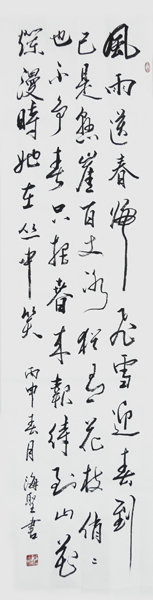 風雨送春歸飛雪迎春到
已是懸崖百丈冰猶有花枝俏〻
也不争春只把春來報待到山花
爛漫時她在丛中笑
丙申春月海聖書